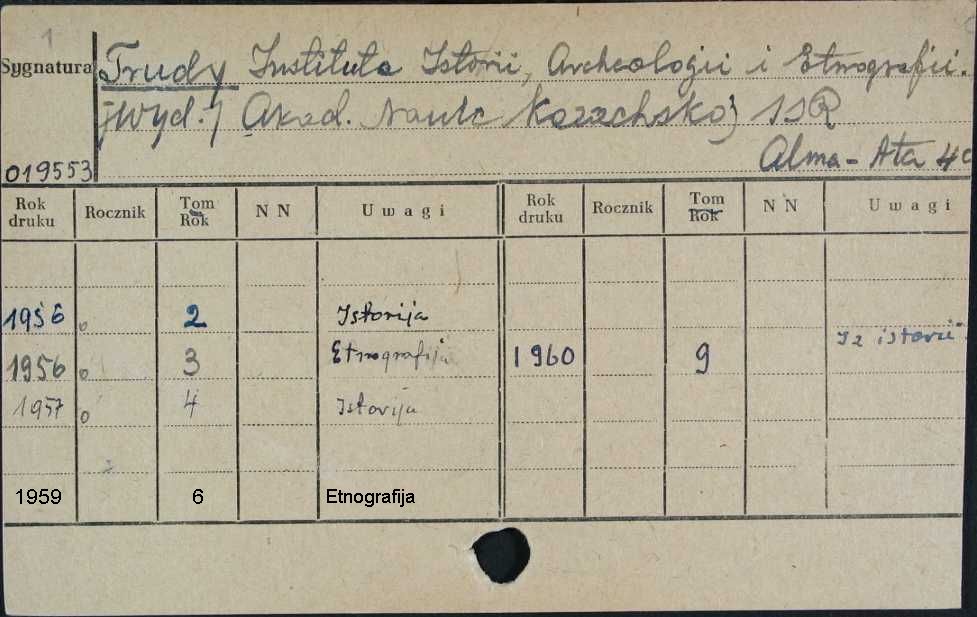 1
Sygnatura
Trudy Instituta Istorii, Archeologii i Etnografii.
[Wyd.] Akad. Nauk Kazachskoj SSR
019553
Alma-Ata 4°
Rok druku Rocznik Tom Rok N N Uwagi Rok druku Rocznik Tom Rok N N Uwagi
1956 o 2 Istorija
1956 o 3 Etnografija 1960 9 Iz istorii
1957 o 4 Istorija
1959 6 Etnografija